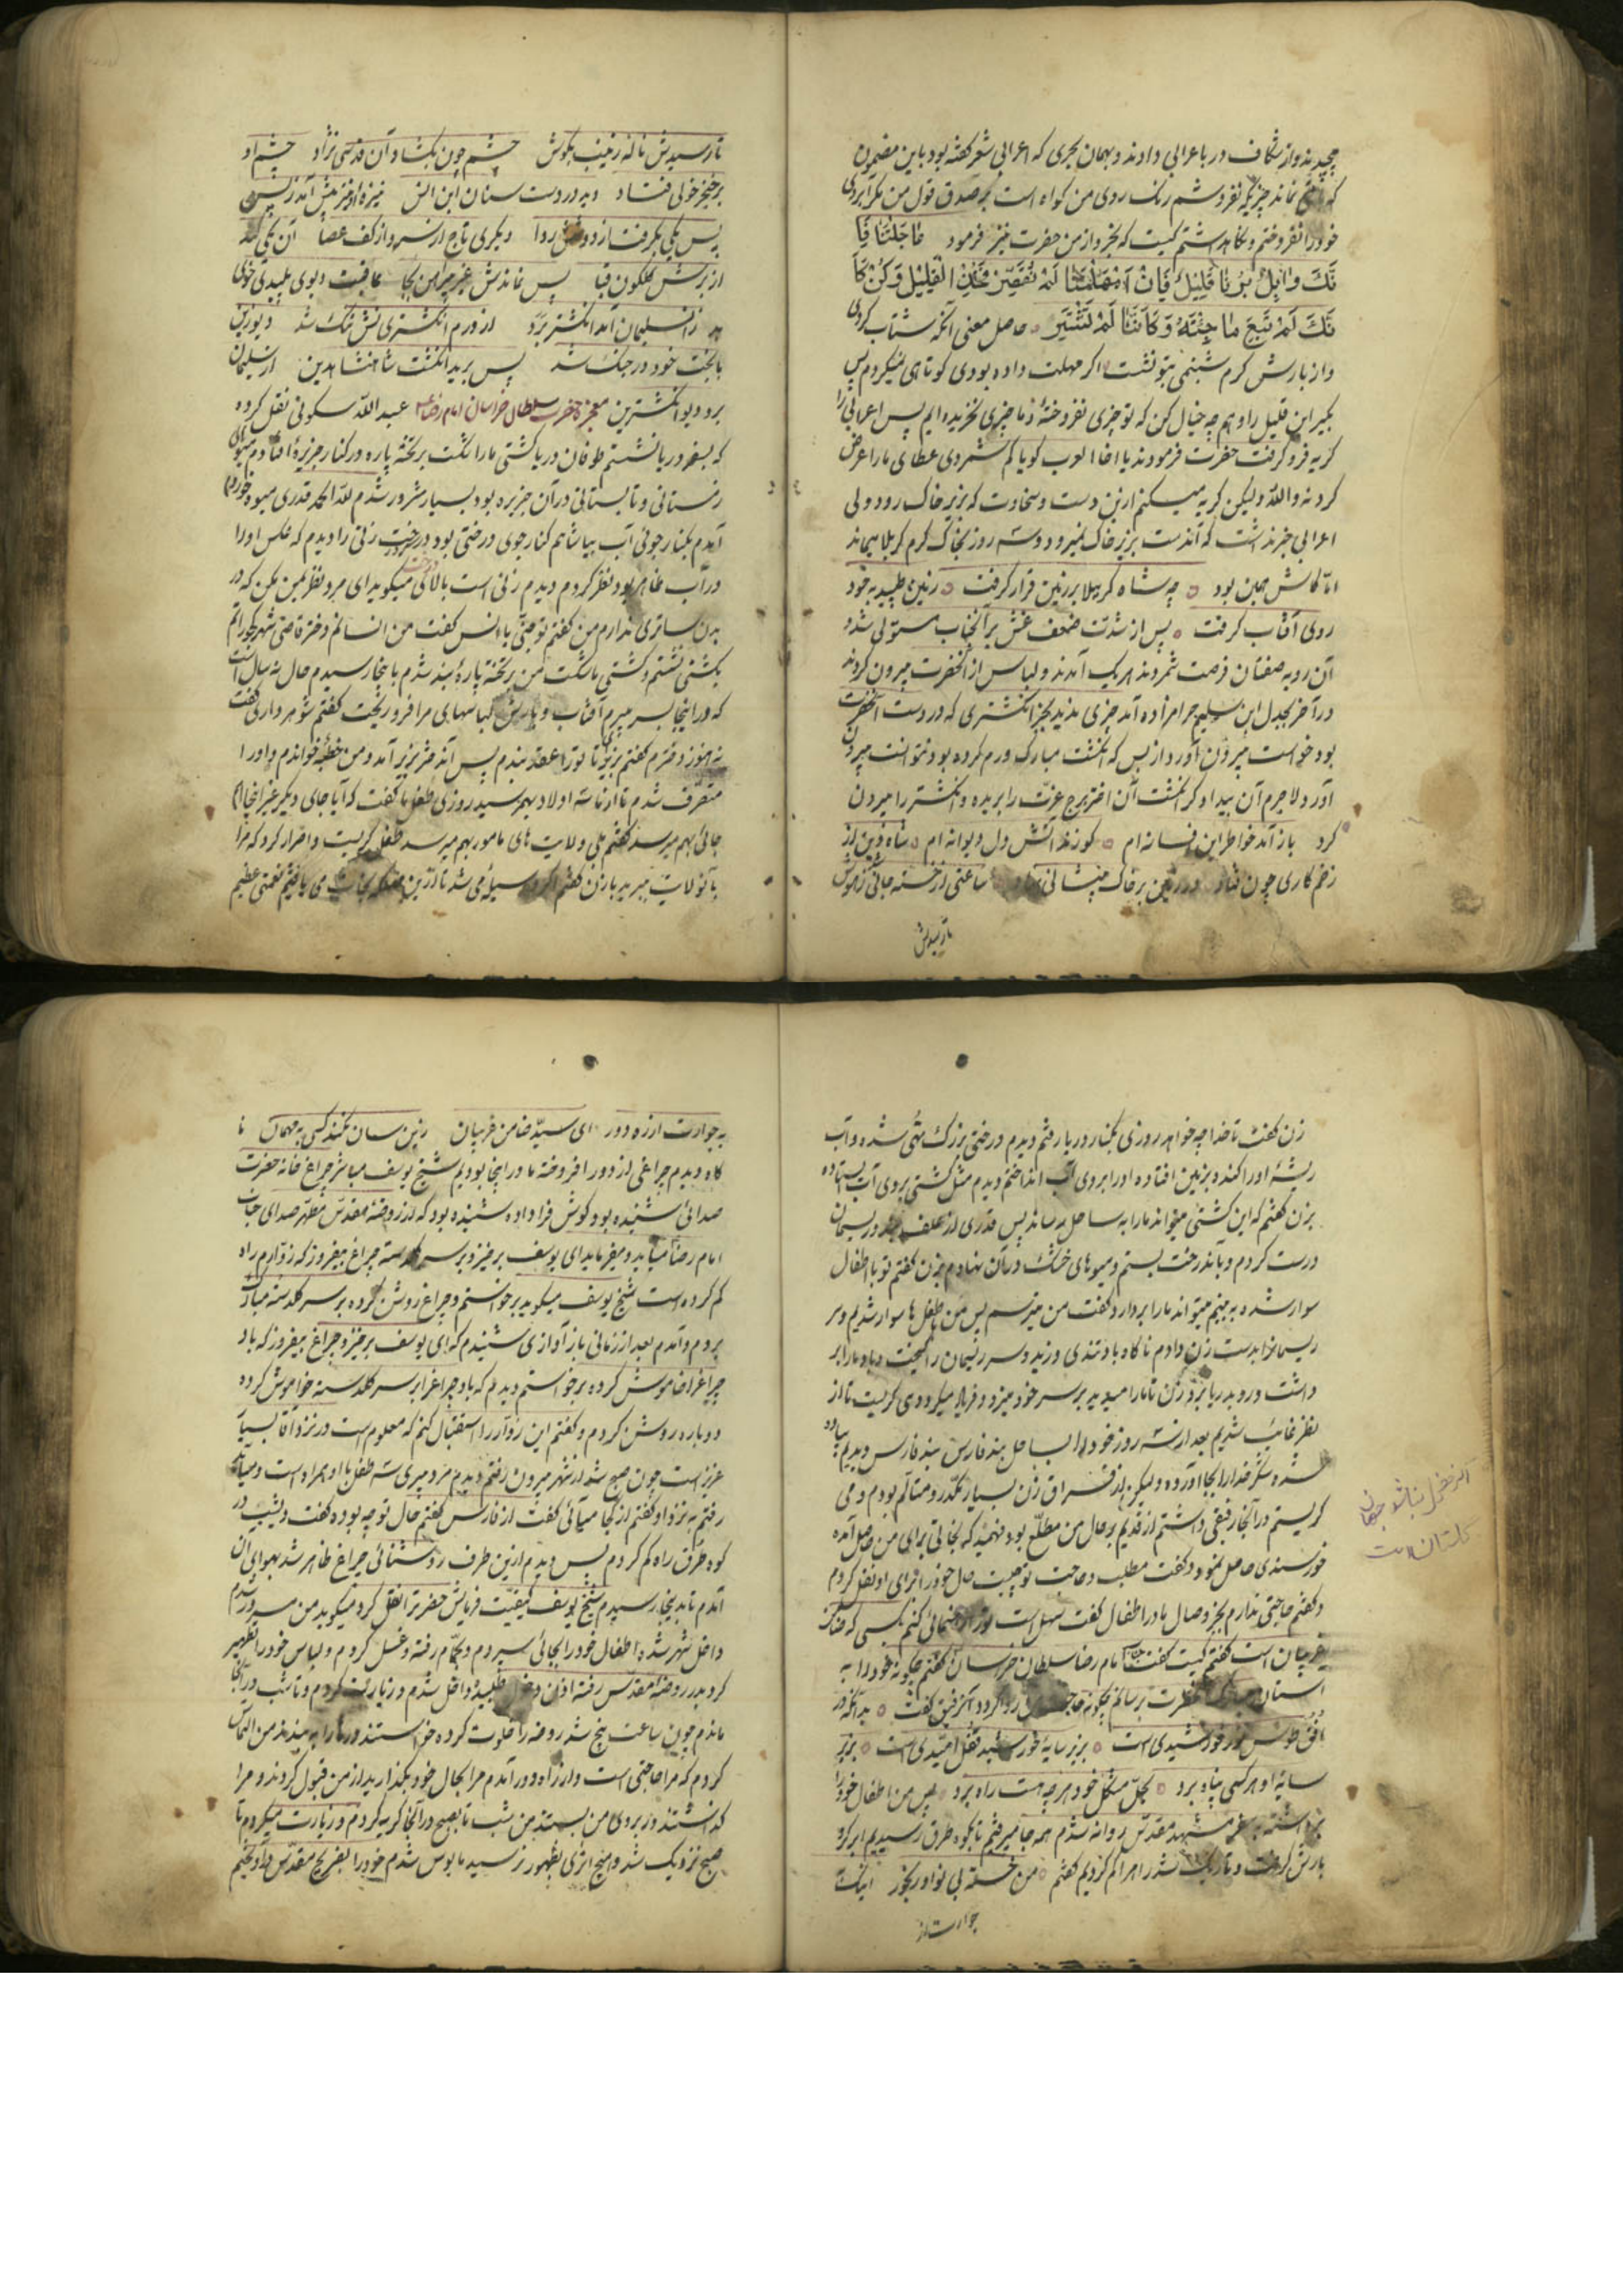 پیچیدند و از شکاف در باعرابی دادند و بهمان بحری که اعرابی شعر گفته بود باین مضمون
که هیچ نماند چیزیکه نفروشم رنگ روی من گواه است بر صدق قول من مگر آبروی
خود را نفروختم و نگاهداشتم کیست که بخرد از من حضرت نیز فرمود عاجَلتَنا فَا
تَكَ وابِلُ بِرِّنا قَلیلُ فَاِنْ اَمْهَلْتَنا لَمْ نُقَصِّرْ فَخُذِ الْقَلیلَ وَكُنْ كَاَ
نَّكَ لَمْ تَبِعْ ما جِئْتَهُ وَكَاَنَّنا لَمْ نَشْتَرِ حاصل معنی آنکه شتاب کردی
و از بارش کرم شبنمی بتو نشست اگر مهلت داده بودی کوتاهی نمیکردم پس
بگیر این قلیل را و هم چه خیال کن که تو چیزی نفروختهٔ و ما چیزی نخریده ایم پس اعرابی را
گریه فرو گرفت حضرت فرمودند یا اخا العرب گویا کم شمردی عطای ما را عرض
کرد نه والله ولیکن گریه میکنم ازین دست و سخاوت که بزیر خاک رود ولی
اعرابی خبر نداشت که آندست بزیر خاک نمیرود و سه روز بخاک گرم کربلا میماند
امّا کاش همین بود چه شاه کربلا بر زمین قرار گرفت زمین طپید بخود
روی آفتاب گرفت پس از شدّت ضعف غش بر آنجناب مستولی شد و
آن روبه صفتان فرصت شمردند هر یک آمدند و لباس از آنحضرت بیرون کردند
در آخر بجدل ابن سلیم حرامزاده آمد چیزی ندید بجز انگشتری که در دست آنحضرت
بود خواست بیرون آورد از بس که انگشت مبارک ورم کرده بود نتوانست بیرون
آورد لاجرم آن بیدادگر انگشت آن اختر برج عزّت را بریده و انگشتر را بیرون
کرد باز آمد خاطر این فسانه ام کو زند آتش دل دیوانه ام شاه دین از
زخم کاری چون فتاد در زمین بر خاک پیشانی نهاد ساعتی از خسته جانی زد خروش
تا رسیدش
تا رسیدش ناله زینب بگوش چشم چون بگشاد آن قدسی نژاد چشم او
بر خنجر خولی فتاد دید در دست سنان ابن انس نیزه او نیز پیش آمد ز پس
پس یکی بگرفت از دوشش ردا دیگری تاج از سر و از کف عصا آن یکی کند
از برش گلگون قبا پس نماندش غیر پیراهن بجا عاقبت دیوی پلیدی خولی
بد زان سلیمان آمد انگشتر برد از ورم انگشتری اش تنگ شد دیو زین
با بخت خود در جنگ شد پس برید انگشت شاهنشاه دین از سلیمان
برد دیو انگشترین معجزهٔ حضرت سلطان خراسان امام رضا عبدالله سکونی نقل کرده
که بسفر دریا نشستم طوفان دریا کشتی ما را شکست بر تخته پاره در کنار جزیره افتادم میوهای
زمستانی و تابستانی در آن جزیره بود بسیار مسرور شدم للّه الحمد قدری میوه خورده
آمدم بکنار جوئی آب بیاشامم کنار جوی درختی بود در درخت زنی را دیدم که عکس او را
در آب ظاهر بود نظر کردم دیدم زنی است بالای درخت میگوید ای مرد نظر بمن مکن که در
بدن ساتری ندارم من گفتم تو جنّی یا انس گفت من انسانم دختر قاضی شهر
بکشتی نشستم و کشتی ما شکست من بر تخته پارهٔ بند شدم باینجا رسیدم حال سه سال است
که در اینجا بسر میبرم آفتاب و بارش لباسهای مرا فرو ریخت گفتم شوهر داری گفت
نه هنوز دخترم گفتم بزیر بیا تا تو را عقد ببندم پس آندختر بزیر آمد و من خطبه خواندم و او را
متصرّف شدم تا از ما سه اولاد بهم رسید روزی طفل ما گفت که آیا جای دیگر غیر اینجا
جائی بهم میرسد گفتم بلی ولایت های مامور بهم میرسد طفل گریست و اصرار کرد که مرا
بآن ولایت ببرید بزن گفتم اگر وسیلهٔ می شد تا ازین مهلکه نجات می یافتیم نعمتی عظیم
زن گفت تا خدا چه خواهد روزی بکنار دریا رفتم دیدم درختی بزرگ تهی شده و آب
ریشهٔ او را کنده و بزمین افتاده او را بروی آب انداختم دیدم مثل کشتی بروی آب ایستاده
بزن گفتم که این کشتی میتواند ما را به ساحل برساند پس قدری از علف ریسمان
درست کردم و بآندرخت بستم و میوهای خشک در آن نهادم بزن گفتم تو با اطفال
سوار شده به بینم میتواند ما را بردارد گفت من میترسم پس من با طفل ها سوار شدیم و سر
ریسمانرا بدست زن دادم ناگاه باد تندی وزید و سر ریسمان را گسیخت و باد ما را بر
داشت و رو بدریا برد زن تا ما را میدید بر سر خود میزد و فریاد میکرد و می گریست تا از
نظر غایب شدیم بعد از سه روز خود را بساحل بندر فارس دیدیم پیاده
شده شکر خدا را بجا آورده ولیکن از فراق زن بسیار مکدّر و متألّم بودم و می
گریستم در آنجا رفیقی داشتم از قدیم بر حال من مطلّع بود فهمید که نجاتی برای من حاصل آمده
خورسندی حاصل نمود و گفت مطلب و حاجت تو چیست حال خود را از برای او نقل کردم
و گفتم حاجتی ندارم بجز وصال مادر اطفال گفت سهل است تو را راهنمائی کنم بکسی که ضامن
غریبان است گفتم کیست گفت جناب امام رضا سلطان خراسان گفتم چگونه خود را به
آستان آنحضرت برسانم چگونه حاجت مرا روا گردد آنرفیق گفت بدانکه در
افق طوس نور خورشیدی است بزیر سایهٔ خورشید قفل امیدی است بزیر
سایهٔ او هر کسی پناه برد بحلّ مشکل خود هر چه هست راه برد پس من اطفال خود را
برداشته بسفر مشهد مقدّس روانه شدم همه جا میرفتم تا بکوه طرق رسیدیم ابر کرد
بارش گرفت و تاریک شد راه را گم کردیم گفتم من خسته بی نوا و رنجور اینک
جوارت از
به جوارت از ره دور ای سیّد ضامن غریبان زین سان نکند کسی به مهمان نا
گاه دیدم چراغی از دور افروخته ما در اینجا بودیم شیخ یوسف مباشر چراغ خانه حضرت
صدائی شنیده بود گوش فرا داده شنیده بود که از روضهٔ مقدّس مطهّر صدای جناب
امام رضا میآید و میفرماید ای یوسف برخیز و بر سر گلدسته چراغ بیفروز که زوّارم راه
گم کرده است شیخ یوسف میگوید برخواستم و چراغ روشن کرده بر سر گلدسته مبارک
بردم و آمدم بعد از زمانی باز آوازی شنیدم که ای یوسف برخیز و چراغ بیفروز که باد
چراغ را خاموش کرده برخواستم دیدم که باد چراغ را بر سر گلدسته خواموش کرده
دوباره روشن کردم و گفتم این زوّار را استقبال کنم که معلوم است در نزد آقا بسیار
عزیز است چون صبح شد از شهر بیرون رفتم دیدم مردمیری سه طفل با او همراه است و میآید
رفتم به نزد او گفتم از کجا میآئی گفت از فارس گفتم حال تو چه بوده گفت دیشب در
کوه طرق راه گم کردم پس دیدم ازین طرف روشنائی چراغ ظاهر شد بهوای آن
آمدم تا بدینجا رسیدم شیخ یوسف کیفیّت فرمایش حضرت را نقل کرد میگوید من مسرور شدم
داخل شهر شده اطفال خود را بجائی سپردم و بحمّام رفته و غسل کردم و لباس خود را تطهیر
کرده در روضه مقدّس رفته اذن دخول طلبیده داخل شدم و زیارت کردم و تا شب در آنجا
ماندم چون ساعت پنج شد روضه را خلوت کرده خواستند درها را به بندند من التماس
کردم که مرا حاجتی است و از راه دور آمدم مرا بحال خود بگذارید از من قبول کردند و مرا
گذاشتند در بروی من بستند من شب تا بصبح در آنجا گریه کردم و زیارت میکردم تا
صبح نزدیک شد و هیچ اثری بظهور نرسید مأیوس شدم خود را بضریح مقدّس در آویختم